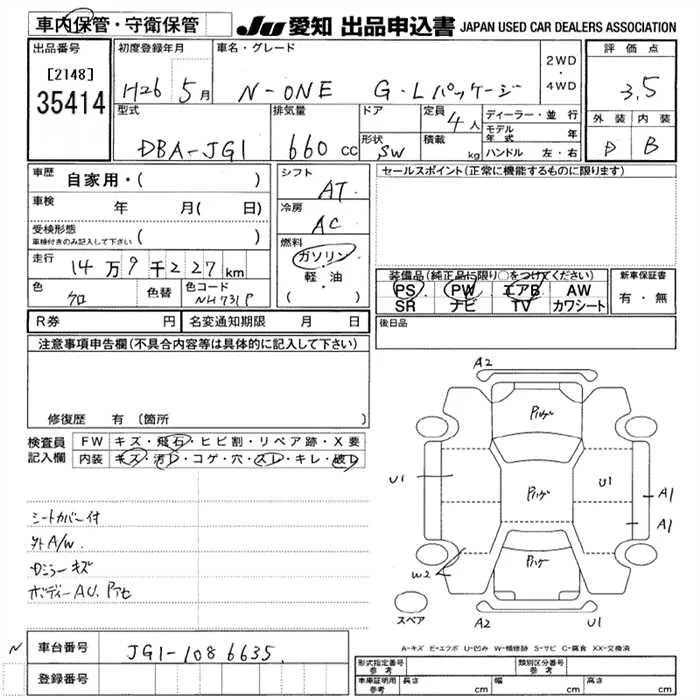 車内保管・守衛保管
JU 愛知 出品申込書 JAPAN USED CAR DEALERS ASSOCIATION
出品番号
[2148]
35414
初度登録年月
H26 5月
車名・グレード
N-ONE G・Lパッケージ
2WD
・
4WD
評価点
3.5
外装 内装
B
型式
DBA-JG1
排気量
660 cc
ドア
形状
SW
定員
4人
積載
kg
ディーラー・並行
モデル年式 年
ハンドル 左・右
車歴
自家用・( )
車検
年 月( 日)
受検形態
車検付きのみ記入して下さい ( )
走行
14万9千227km
色
クロ
色替
色コード
NH731P
シフト
AT
冷房
AC
燃料
ガソリン
・
軽・油
( )
セールスポイント(正常に機能するものに限ります)
装備品(純正品に限り○をつけてください)
PS PW エアB AW
SR ナビ TV カワシート
新車保証書
有・無
後日品
R券 円
名変通知期限 月 日
注意事項申告欄(不具合内容等は具体的に記入して下さい)
修復歴 有 (箇所 )
検査員
記入欄
FW キズ・飛石・ヒビ割・リペア跡・X要
内装 キズ・汚レ・コゲ・穴・スレ・キレ・破レ
シートカバー付
外A/W.
ロミラーキズ
ボディーAU.Pアセ
A2
Pハゲ
U1
Pハゲ
U1
A1
A1
Pハゲ
W2
スペア
A2
U1
A-キズ E-エクボ U-凹み W-補修跡 S-サビ C-腐食 XX-交換済
N
車台番号
JG1-1086635
登録番号
形式指定番号
参考
類別区分番号
参考
車庫証明用
参考
長さ cm 幅 cm 高さ cm